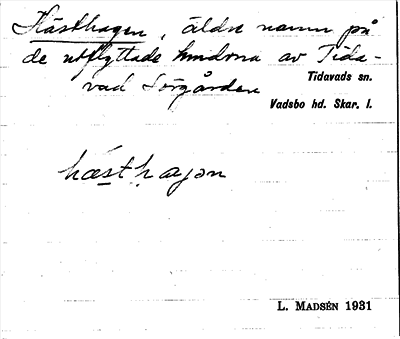 Hästhagen, äldre namn på
de utflyttade hundrna av Tida-
vad Sörgården
Tidavads sn.
Vadsbo hd. Skar. l.
hæsthagən
L. MADSÉN 1931